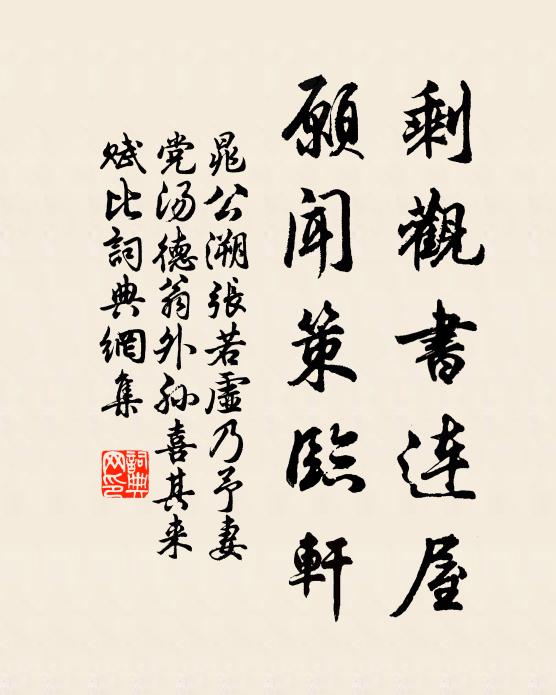 剩觀書連屋
願聞策臨軒
晁公溯張若虛乃予妻
党汤德翁外孙喜其来
赋比詞典網集
詞典
网印